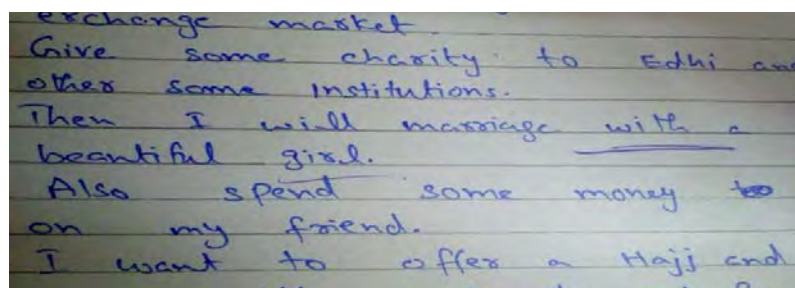 exchange market.
Give some charity to Edhi and
other some institutions.
Then I will marriage with a
beautiful girl.
Also spend some money
on my friend.
I want to offer a Hajj and